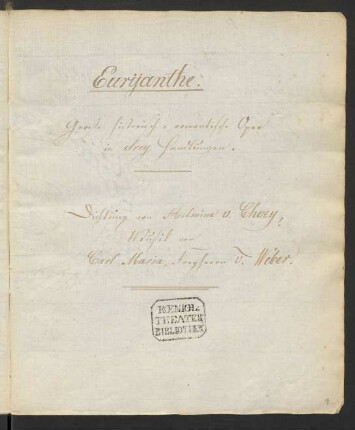 Euryanthe.
Große historisch = romantische Oper
in drey Handlungen.
Dichtung von Helmine v. Chezy,
Musik von
Carl Maria, Freyherrn v. Weber.
KŒNIGL:
THEATER
BIBLIOTHEK